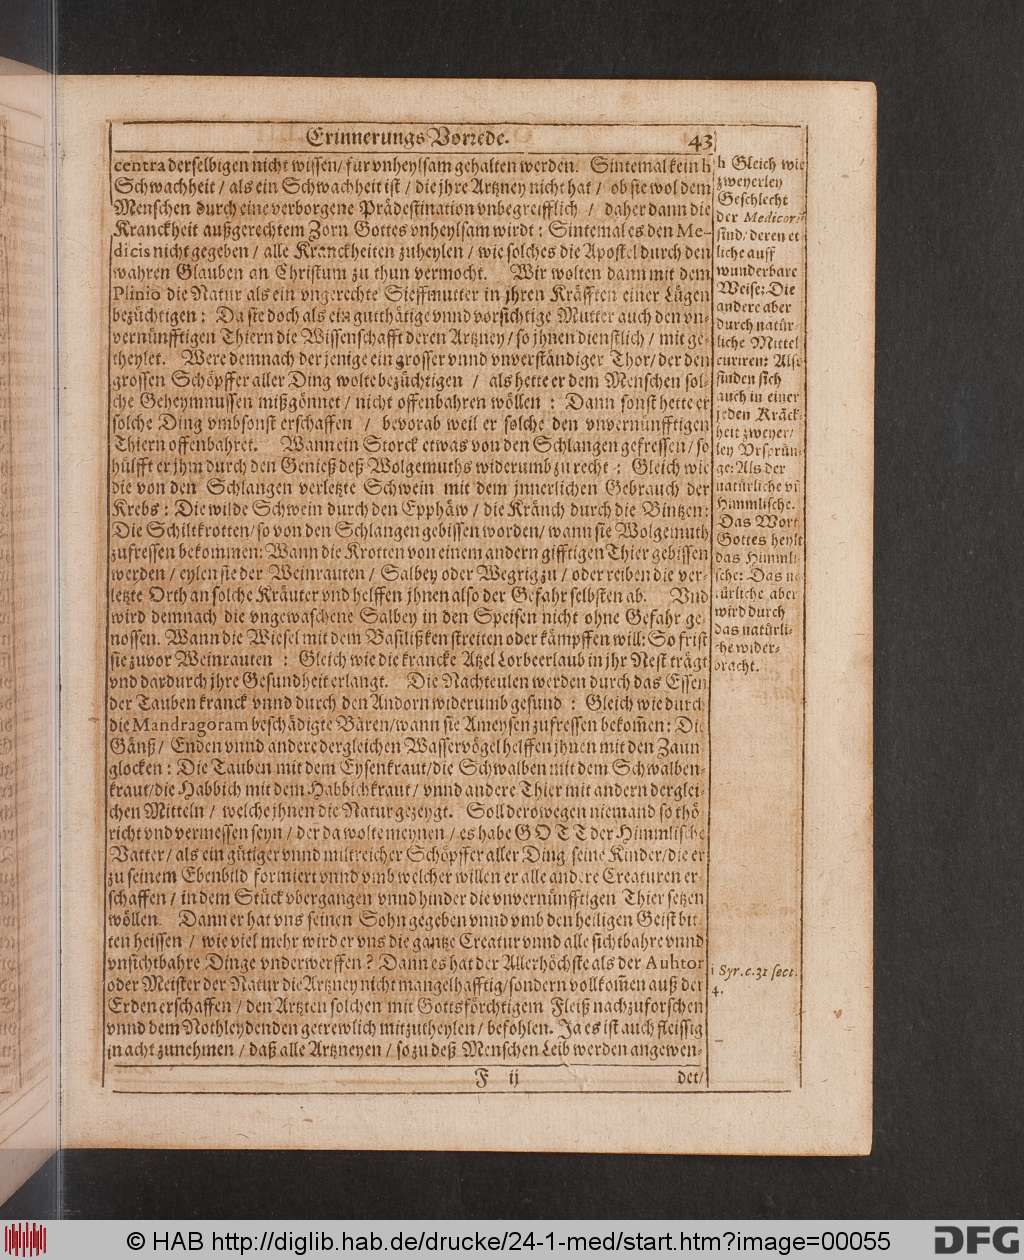 Erinnerungs Vorrede. 43
centra derselbigen nicht wissen / für vnheylsam gehalten werden. Sintemal kein h
Schwachheit / als ein Schwachheit ist / die jhre Artzney nicht hat / ob sie wol dem
Menschen durch eine verborgene Prädestination vnbegreifflich / daher dann die
Kranckheit außgerechtem Zorn Gottes vnheylsam wirdt : Sintemal es den Me-
dicis nicht gegeben / alle Kranckheiten zuheylen / wie solches die Apostel durch den
wahren Glauben an Christum zu thun vermocht. Wir wolten dann mit dem
Plinio die Natur als ein vngerechte Stieffmutter in jhren Kräfften einer Lügen
bezüchtigen : Da sie doch als ein gutthätige vnnd vorsichtige Mutter auch den vn-
vernünfftigen Thiern die Wissenschafft deren Artzney / so jhnen dienstlich / mit ge-
theylet. Were demnach der jenige ein grosser vnnd vnverständiger Thor / der den
grossen Schöpffer aller Ding wolte bezüchtigen / als hette er dem Menschen sol-
che Geheymnussen mißgönnet / nicht offenbahren wöllen : Dann sonst hette er
solche Ding vmbsonst erschaffen / bevorab weil er solche den vnvernünfftigen
Thiern offenbahret. Wann ein Storck etwas von den Schlangen gefressen / so
hülfft er jhm durch den Genieß deß Wolgemuths widerumb zu recht : Gleich wie
die von den Schlangen verletzte Schwein mit dem jnnerlichen Gebrauch der
Krebs : Die wilde Schwein durch den Epphäw / die Kränch durch die Bintzen :
Die Schiltkrotten / so von den Schlangen gebissen worden / wann sie Wolgemuth
zufressen bekommen : Wann die Krotten von einem andern gifftigen Thier gebissen
werden / eylen sie der Weinrauten / Salbey oder Wegrig zu / oder reiben die ver-
letzte Orth an solche Kräuter vnd helffen jhnen also der Gefahr selbsten ab. Vnd
wird demnach die vngewaschene Salbey in den Speisen nicht ohne Gefahr ge-
nossen. Wann die Wiesel mit dem Basilißken streiten oder kämpffen will : So frist
sie zuvor Weinrauten : Gleich wie die krancke Atzel Lorbeerlaub in jhr Nest trägt
vnd dardurch jhre Gesundheit erlangt. Die Nachteulen werden durch das Essen
der Tauben kranck vnnd durch den Andorn widerumb gesund : Gleich wie durch
die Mandragoram beschädigte Bären / wann sie Ameysen zufressen bekom̃en : Die
Gänß / Enden vnnd andere dergleichen Wasservögel helffen jhnen mit den Zaun
glocken : Die Tauben mit dem Eysenkraut / die Schwalben mit dem Schwalben-
kraut / die Habbich mit dem Habbichkraut / vnnd andere Thier mit andern derglei-
chen Mitteln / welche jhnen die Natur gezeygt. Soll derowegen niemand so thö
richt vnd vermessen seyn / der da wolte meynen / es habe GOTT der Himmlische
Vatter / als ein gütiger vnnd miltreicher Schöpffer aller Ding seine Kinder / die er
zu seinem Ebenbild formiert vnnd vmb welcher willen er alle andere Creaturen er-
schaffen / in dem Stück vbergangen vnnd hinder die vnvernünfftigen Thier setzen
wöllen. Dann er hat vns seinen Sohn gegeben vnnd vmb den heiligen Geist bit-
ten heissen / wie viel mehr wird er vns die gantze Creatur vnnd alle sichtbahre vnnd
vnsichtbahre Dinge vnderwerffen ? Dann es hat der Allerhöchste als der Auhtor
oder Meister der Natur die Artzney nicht mangelhafftig / sondern vollkom̃en auß der
Erden erschaffen / den Artzten solchen mit Gottsförchtigem Fleiß nachzuforschen
vnnd dem Nothleydenden getrewlich mitzutheylen / befohlen. Ja es ist auch fleissig
in acht zunehmen / daß alle Artzneyen / so zu deß Menschen Leib werden angewen-
F ij det /
h Gleich wie
zweyerley
Geschlecht
der Medicorũ
sind / deren et
liche auff
wunderbare
Weise : Die
andere aber
durch natür-
liche Mittel
curiren : Also
finden sich
auch in einer
jeden Kräck-
heit zweyer /
ley Vrsprün-
ge : Als der
natürliche vñ
Himmlische.
Das Wort
Gottes heylt
das Himmli
sche : Das na
türliche aber
wird durch
das natürli-
che wider-
bracht.
i Syr. c. 31 sect.
4.
© HAB http://diglib.hab.de/drucke/24-1-med/start.htm?image=00055
DFG